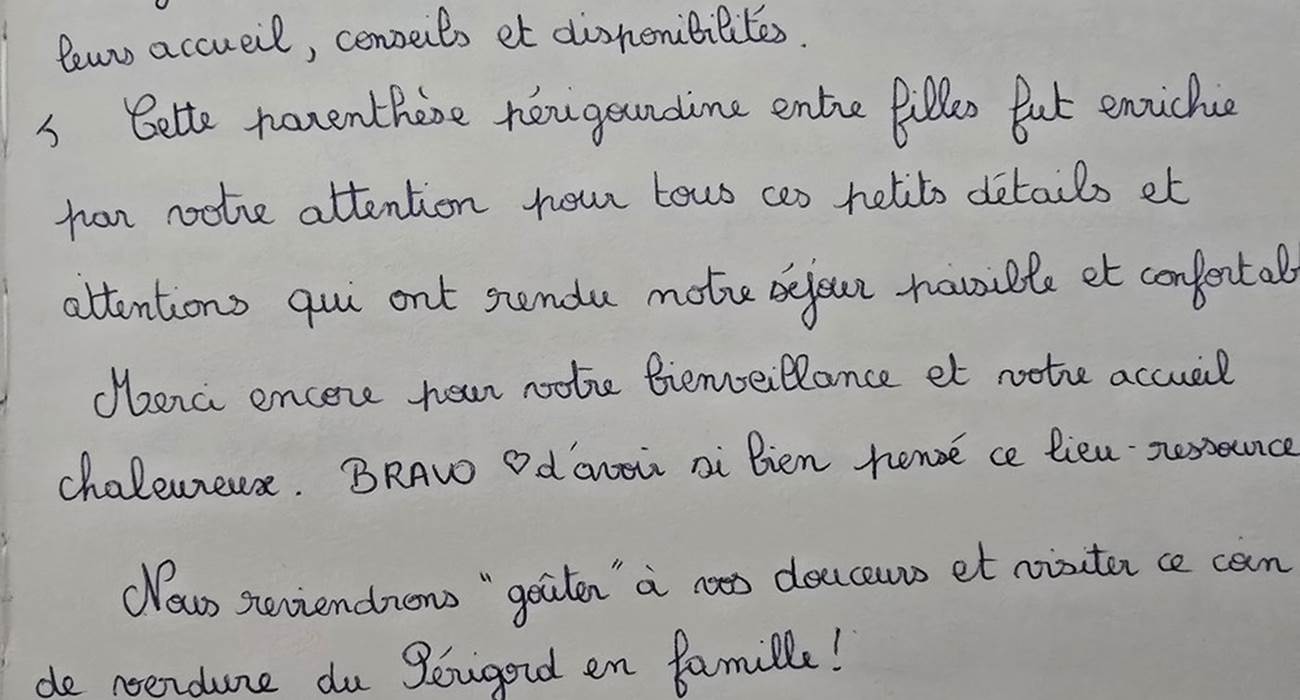 leurs accueil, conseils et disponibilités.
Cette parenthèse périgourdine entre filles fut enrichie
par votre attention pour tous ces petits détails et
attentions qui ont rendu notre séjour paisible et confortab
Merci encore pour votre bienveillance et votre accueil
chaleureux. BRAVO ♡ d'avoir si bien pensé ce lieu-ressource
Nous reviendrons "goûter" à vos douceurs et visiter ce coin
de verdure du Périgord en famille !